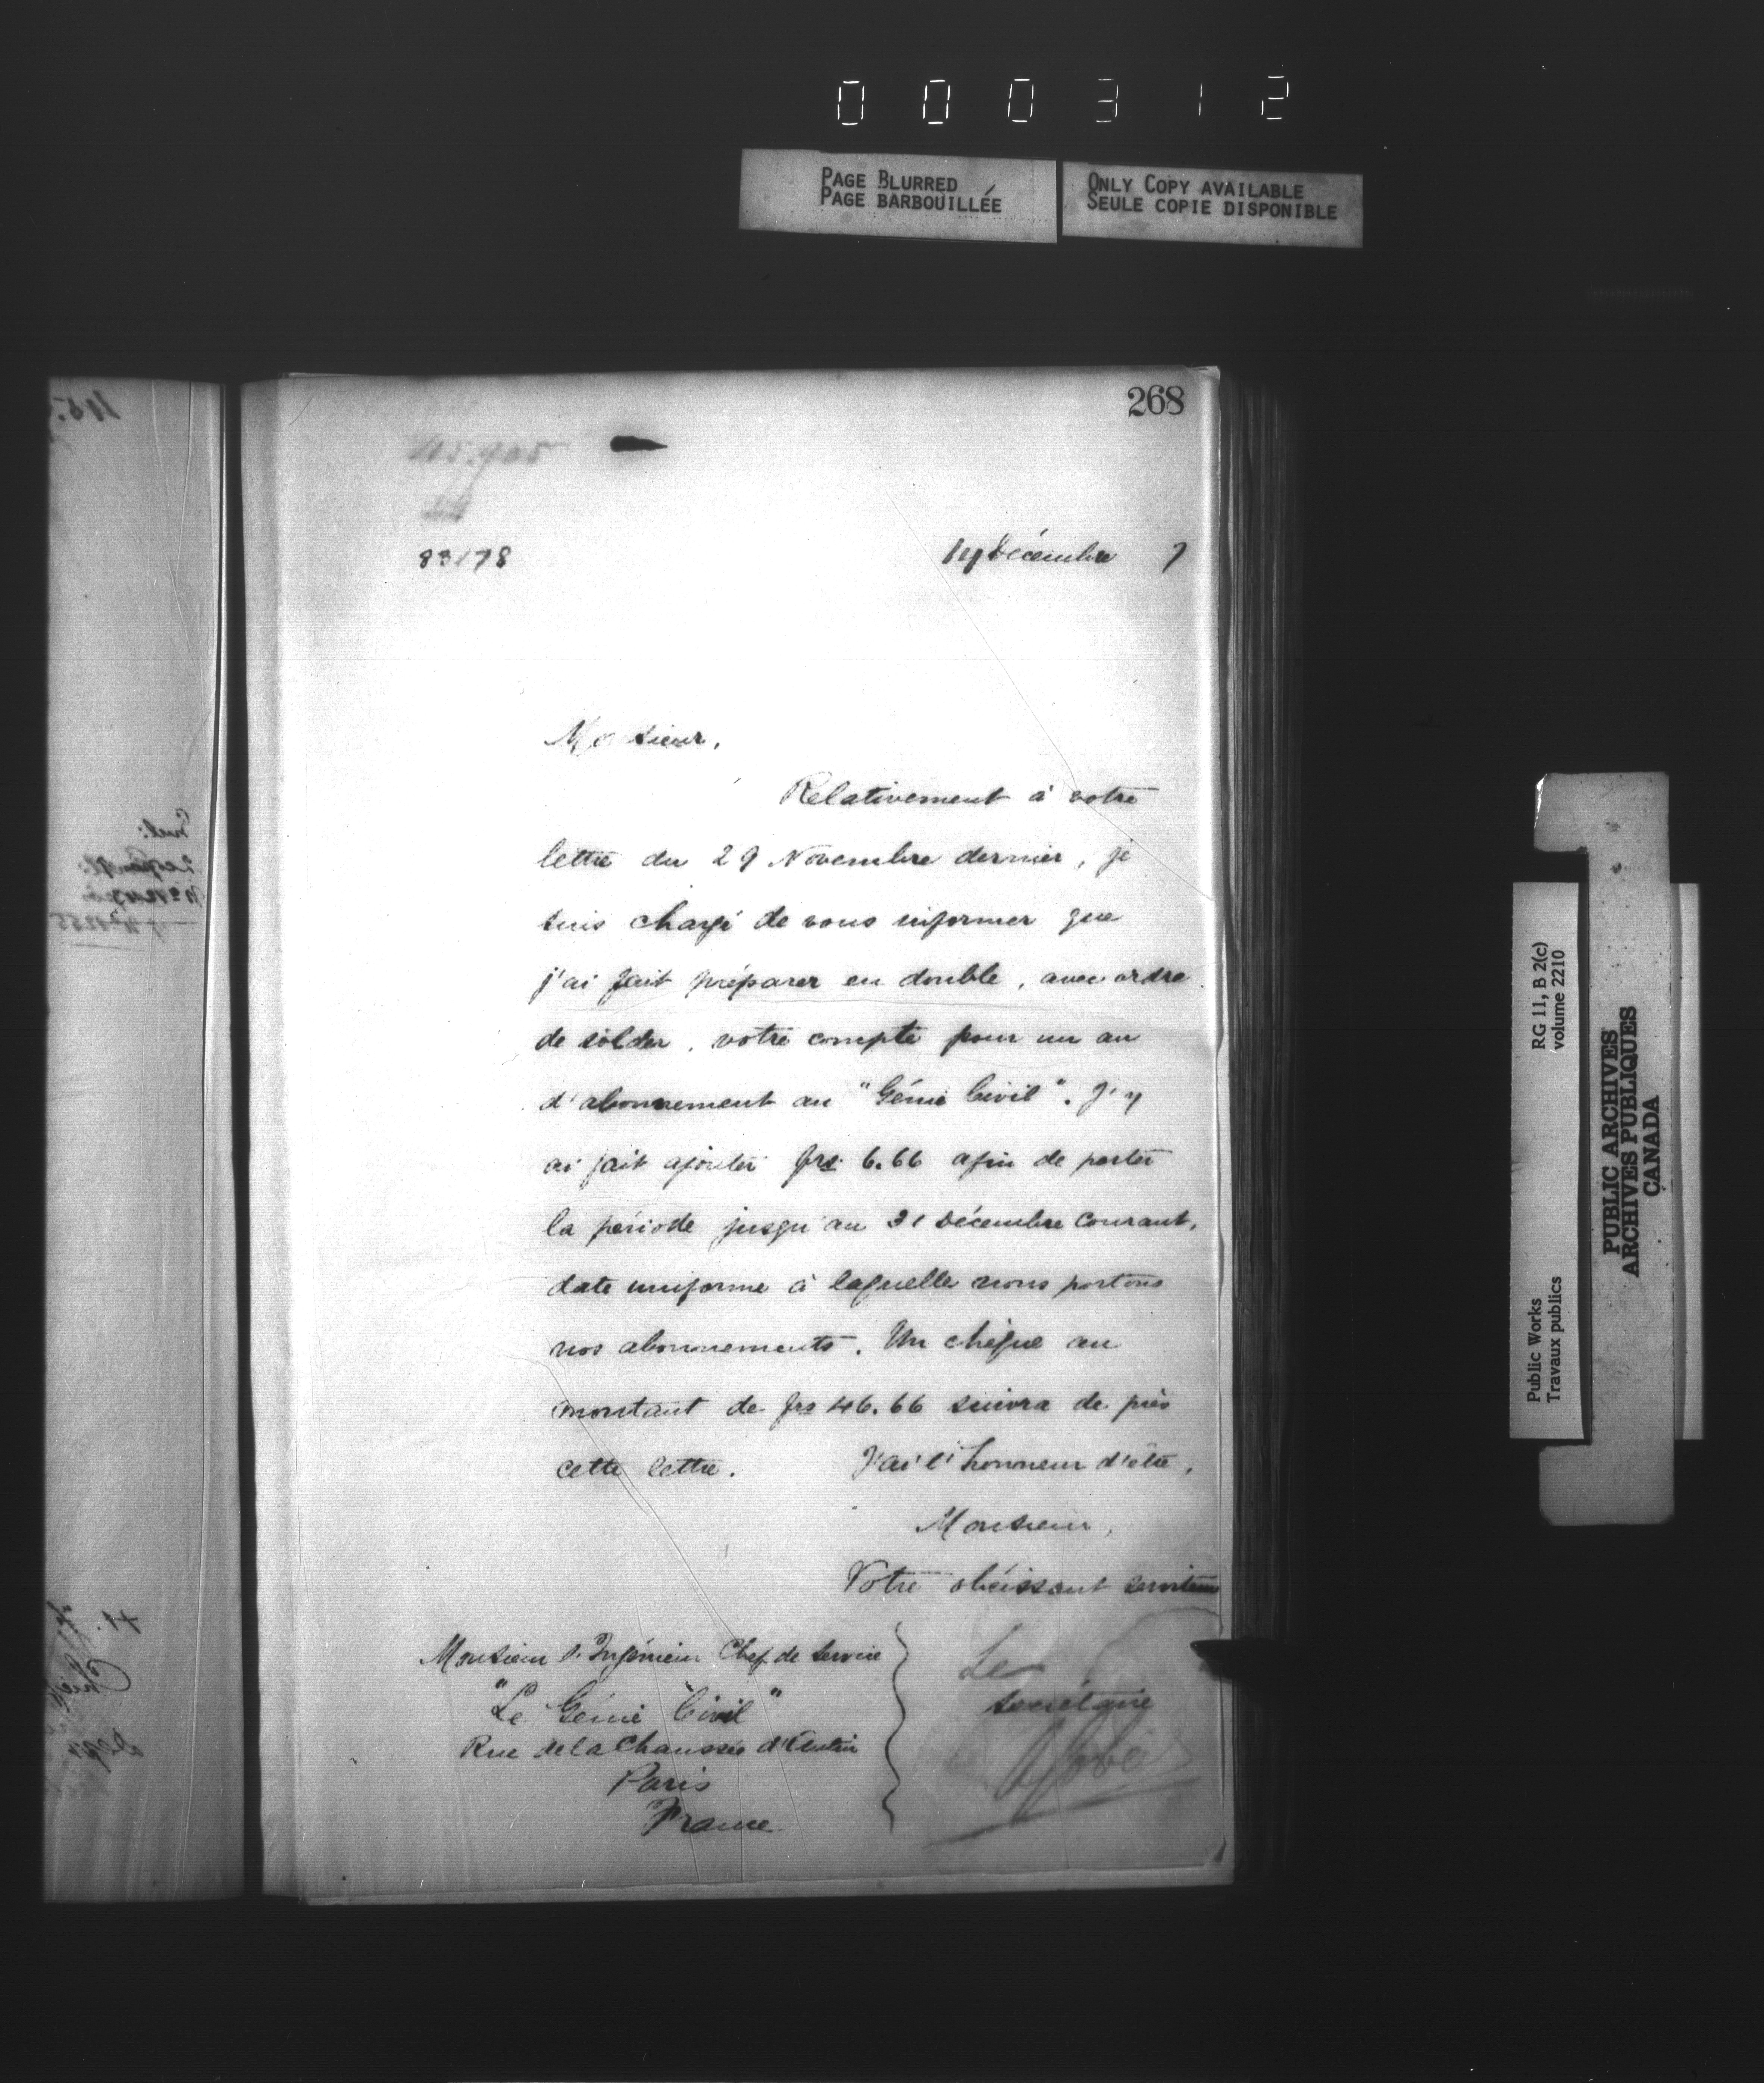 000312
PAGE BLURRED
PAGE BARBOUILLÉE
ONLY COPY AVAILABLE
SEULE COPIE DISPONIBLE
268
83178
14 Décembre 7
Monsieur,
Relativement à votre
lettre du 29 Novembre dernier, je
suis chargé de vous informer que
j'ai fait préparer en double, avec ordre
de solder, votre compte pour un an
d'abonnement au "Génie Civil". J'y
ai fait ajouter frs 6.66 afin de porter
la période jusqu'au 31 Décembre courant,
date uniforme à laquelle nous portons
nos abonnements. Un chèque au
montant de frs 46.66 suivra de près
cette lettre. J'ai l'honneur d'être,
Monsieur,
Votre obéissant serviteur
Monsieur l'Ingénieur Chef de Service
"Le Génie Civil"
Rue de la Chaussée d'Antin
Paris
France
Le
Secrétaire
RG 11, B 2(c)
volume 2210
Public Works
Travaux publics
PUBLIC ARCHIVES
ARCHIVES PUBLIQUES
CANADA